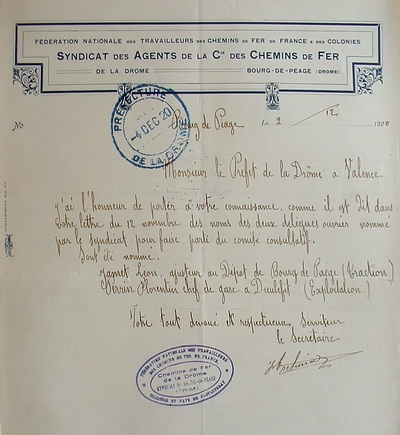 FÉDÉRATION NATIONALE DES TRAVAILLEURS DES CHEMINS DE FER DE FRANCE & DES COLONIES
SYNDICAT DES AGENTS DE LA Cie DES CHEMINS DE FER
DE LA DROME BOURG-DE-PEAGE (DROME)
PREFECTURE
-4 DEC 20
DE LA DROME
No Bourg de Peage Le 2 / 12 1920
Monsieur le Prefet de la Drôme a Valence
J'ai l'honneur de porter a votre connaissance, comme il est dit dans
votre lettre du 12 novembre des noms des deux delegues ouvrier nommé
par le syndicat pour faire parti du comite consultatif.
Sont été nomme.
Jannet Léon, ajusteur au Dépot de Bourg de Paege (traction)
Perrin Florentin chef de gare a Dieulefit (Exploitation)
Votre tout devoué et respectueux Serviteur
le Secrétaire
FEDERATION NATIONALE DES TRAVAILLEURS
DES CHEMINS DE FER DE FRANCE
Chemins de Fer
de la Drôme
SYNDICAT DE BOURG-DE-PEAGE
(Drôme)